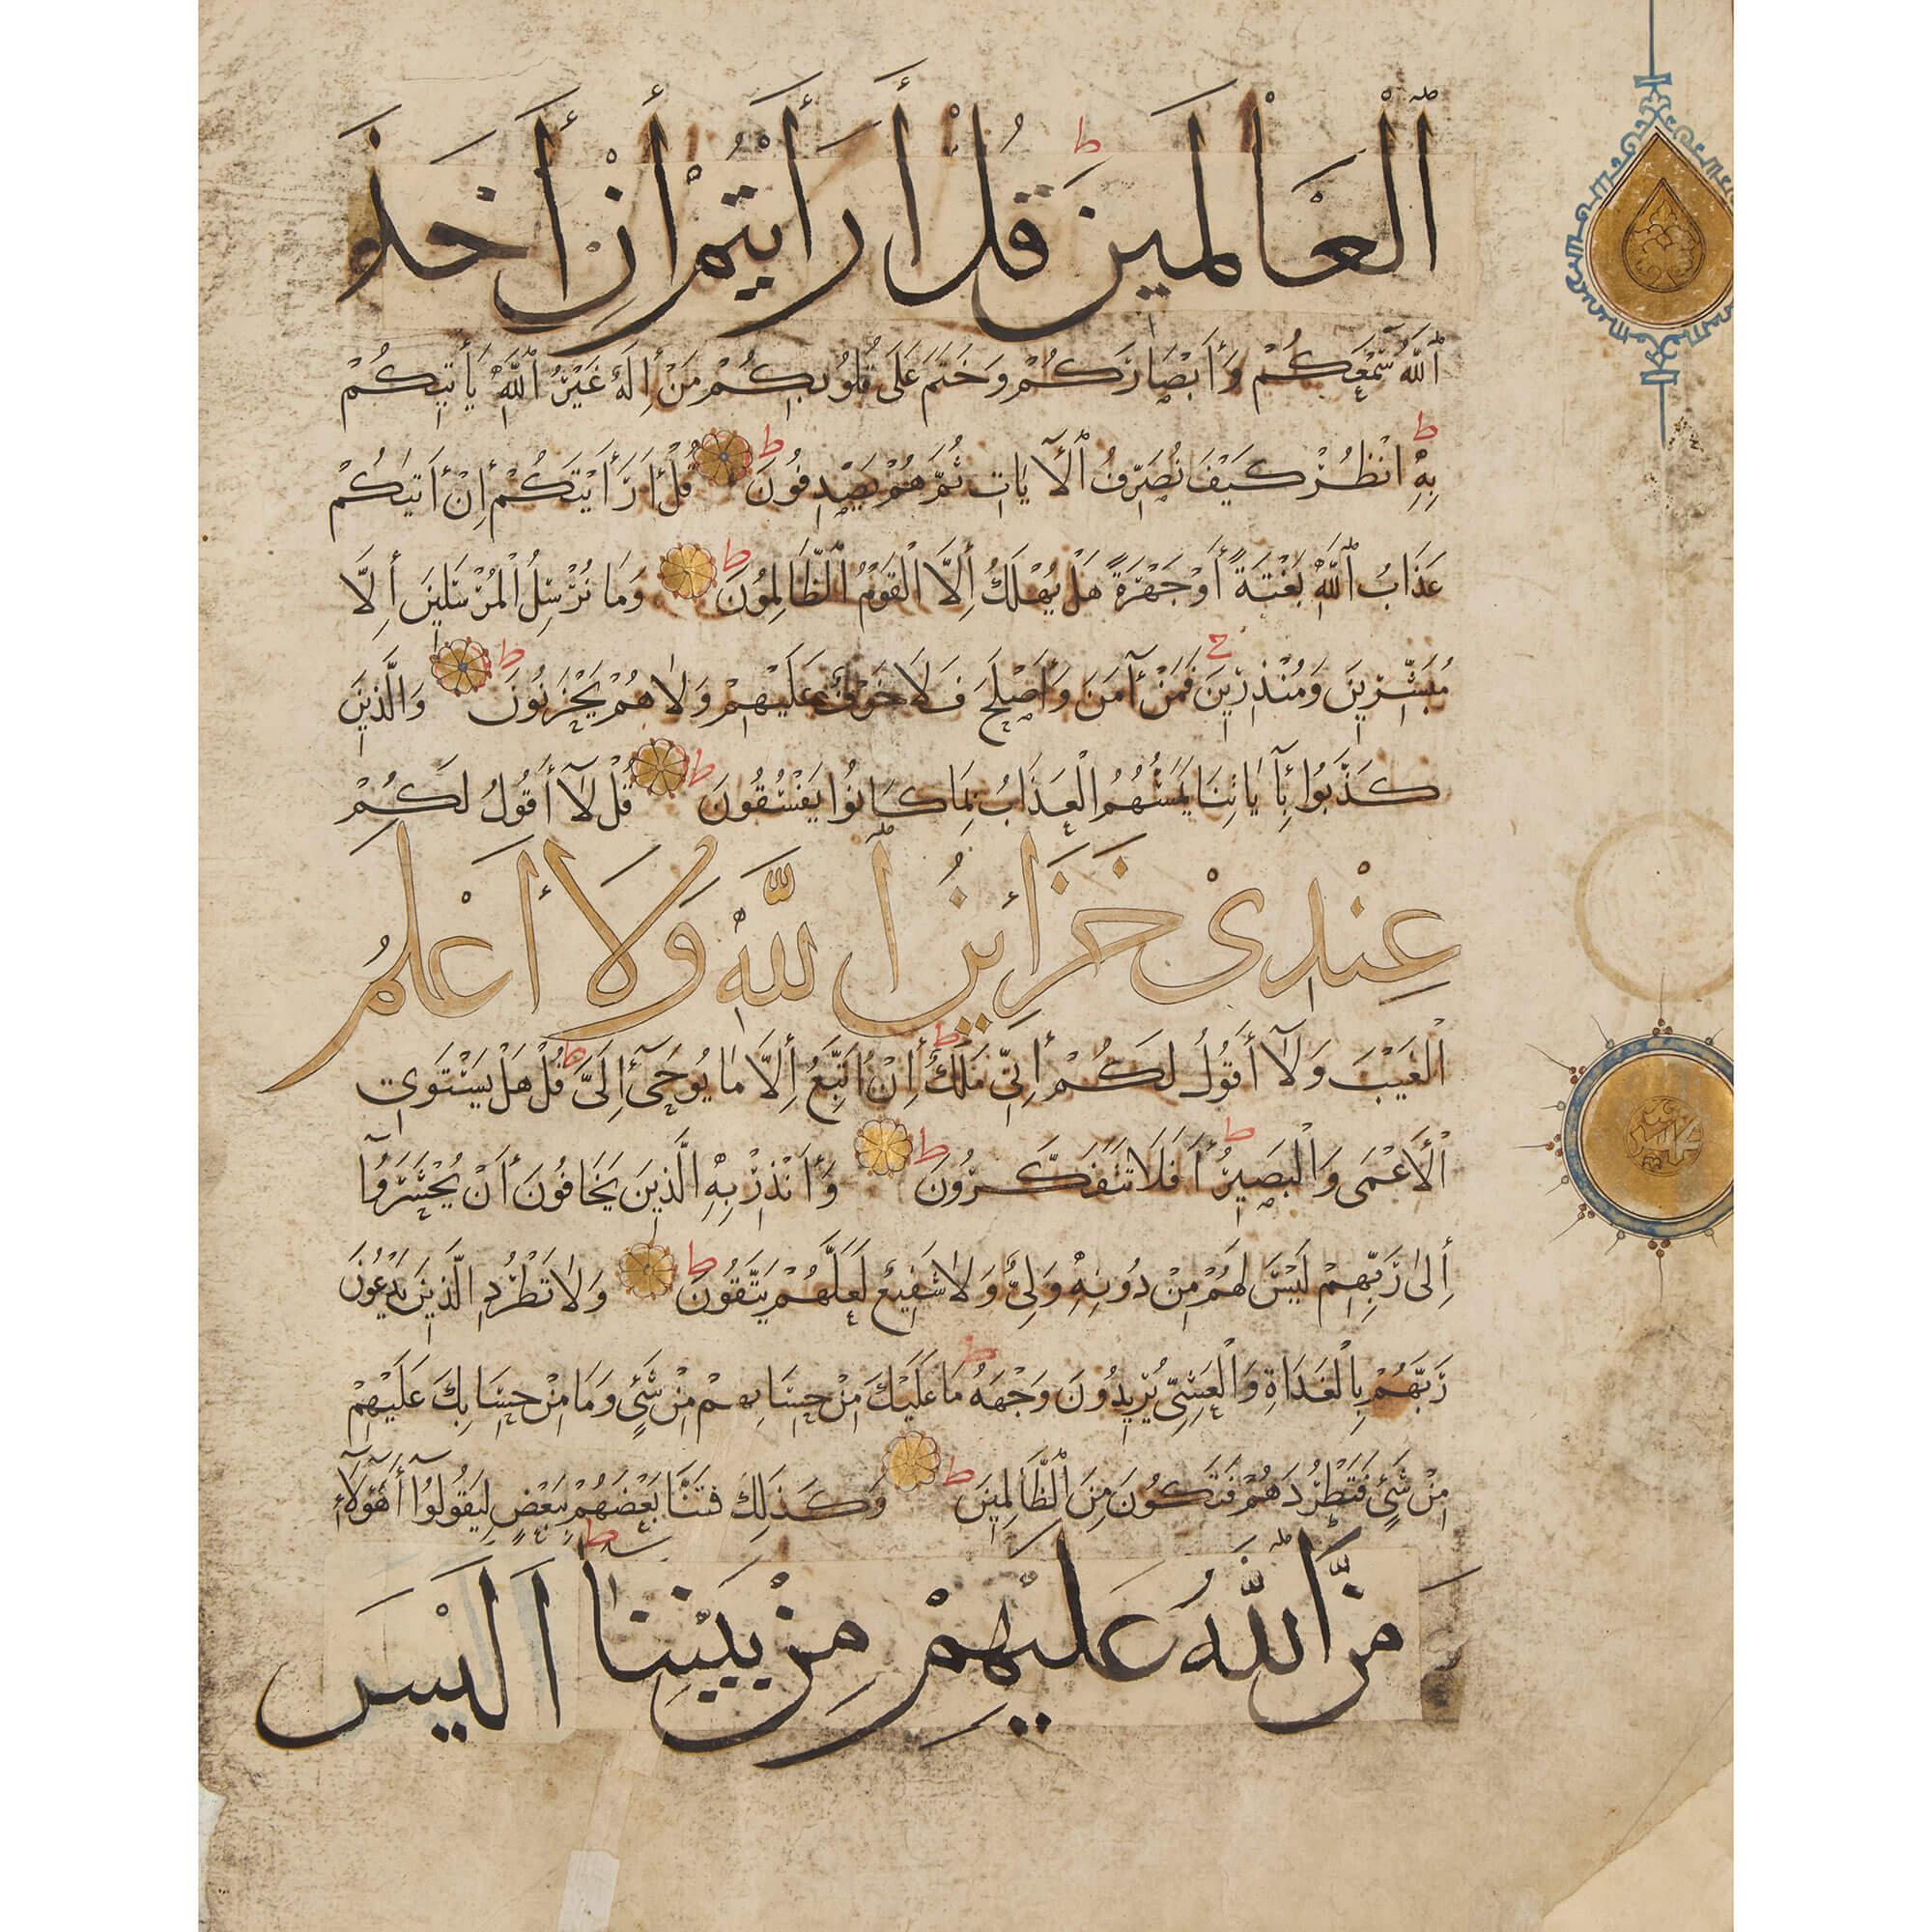 ٱلْعَالَمِينَ ط قُلْ أَرَأَيْتُمْ أِنْ أَخَذَ
ٱللَّهُ سَمْعَكُمْ وَأَبْصَارَكُمْ وَخَتَمَ عَلَى قُلُوبِكُمْ مَنْ أِلَهٌ غَيْرُ ٱللَّهِ يَأْتِيكُمْ
بِهِ ط انْظُرْ كَيْفَ نُصَرِّفُ ٱلْآيَاتِ ثُمَّ هُمْ يَصْدِفُونَ ط قُلْ أَرَأَيْتَكُمْ إِنْ أَتَيٰكُمْ
عَذَابُ ٱللَّهِ بَغْتَةً أَوْ جَهْرَةً هَلْ يُهْلَكُ أِلَّا الْقَوْمُ الْظَّالِمُونَ ط وَمَا نُرْسِلُ الْمُرْسَلِينَ أِلَّا
مُبَشِّرِينَ وَمُنْذِرِينَ ج فَمَنْ آمَنَ وَأَصْلَحَ فَلَا خَوْفٌ عَلَيْهِمْ وَلَا هُمْ يَحْزَنُونَ ط وَالَّذِينَ
كَذَّبُوا بِآيَاتِنَا يَمَسُّهُمُ الْعَذَابُ بِمَا كَانُوا يَفْسُقُونَ ط قُلْ لَآ أَقُولُ لَكُمْ
عِنْدِىْ خَزَائِنُ ٱللَّهِ وَلَا أَعْلَمُ
الْغَيْبَ وَلَآ أَقُولُ لَكُمْ أِنِّي مَلَكٌ ط أِنْ أَتَّبِعُ أِلَّا مَا يُوحَىٓ أِلَىَّ ط قُلْ هَلْ يَسْتَوِي
الْأَعْمَى وَالْبَصِيرُ ط أَفَلَا تَتَفَكَّرُونَ ط وَأَنْذِرْ بِهِ الَّذِينَ يَخَافُونَ أَنْ يُحْشَرُوٓا
أِلىٰ رَبِّهِمْ لَيْسَ لَهُمْ مِنْ دُونِهِ وَلِىٌّ وَلَا شَفِيعٌ لَعَلَّهُمْ يَتَّقُونَ ط وَلَا تَطْرُدِ الَّذِينَ يَدْعُونَ
رَبَّهُمْ بِالْغَدَاةِ وَالْعَشِيِّ يُرِيدُونَ وَجْهَهُ ط مَا عَلَيْكَ مِنْ حِسَابِهِمْ مِنْ شَيْءٍ وَمَا مِنْ حِسَابِكَ عَلَيْهِمْ
مِنْ شَيْءٍ فَتَطْرُدَهُمْ فَتَكُونَ مِنَ الْظَّالِمِينَ ط وَكَذَلِكَ فَتَنَّا بَعْضَهُمْ بِبَعْضٍ لِيَقُولُوٓا أَهَٓؤُلَآءِ
مَنَّ ٱللَّهُ عَلَيْهِمْ مِنْ بَيْنِنَا ط أَلَيْسَ